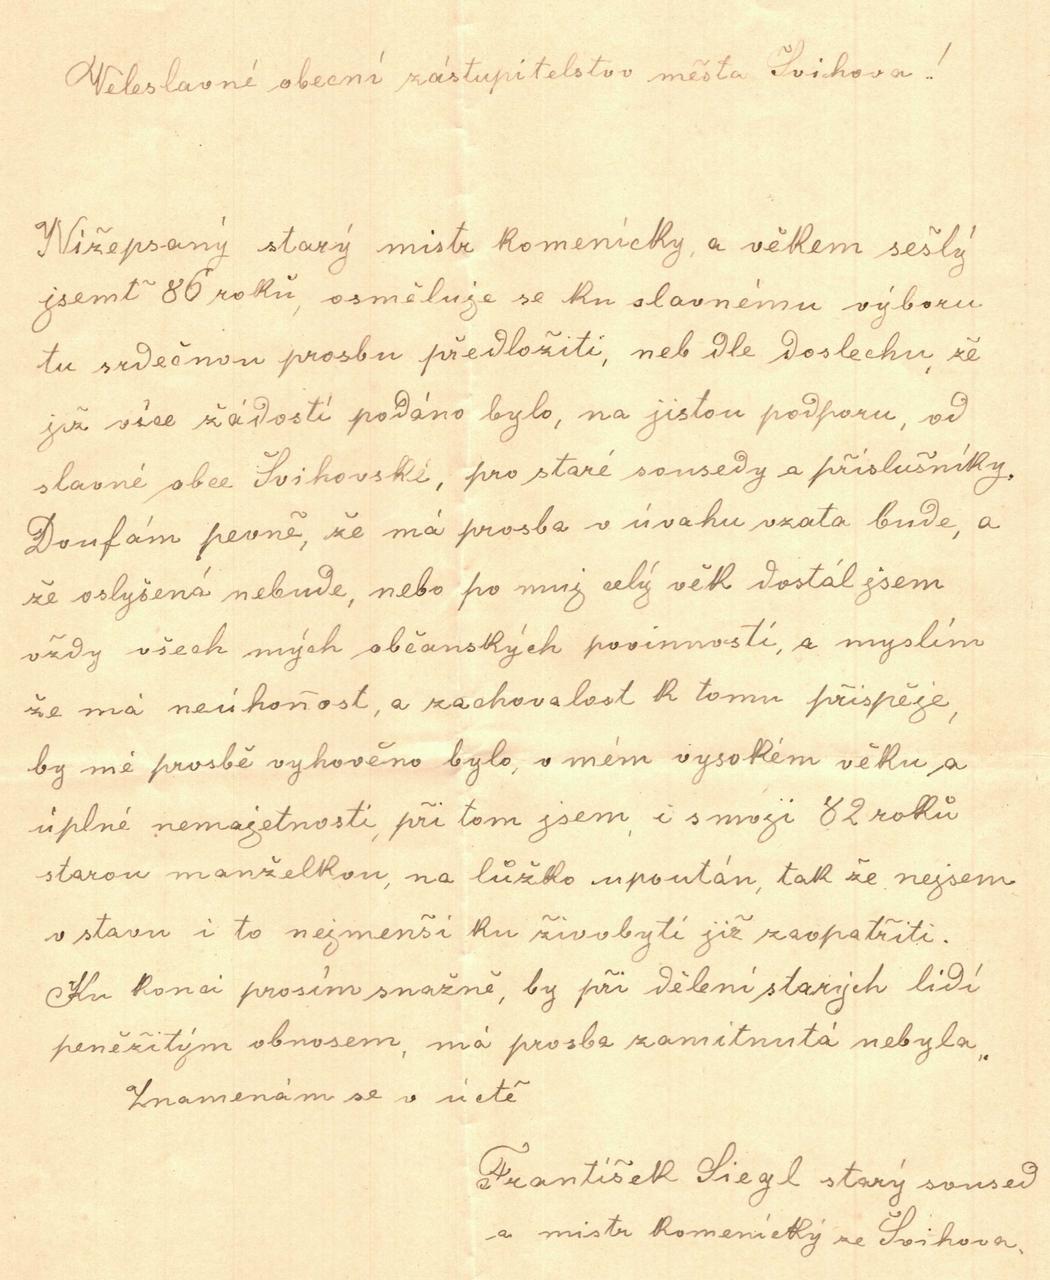 Veleslavné obecní zástupitelstvo města Švihova!
Nížepsaný starý mistr komenícky, a věkem sešlý
jsemť 86 roků, osměluje se ku slavnému výboru
tu srdečnou prosbu předložiti, neb dle doslechu, že
již více žádostí podáno bylo, na jistou podporu, od
slavné obce Švihovské, pro staré sousedy a příslušníky.
Doufám pevně, že má prosba v úvahu vzata bude, a
že oslyšená nebude, nebo po muj celý věk dostál jsem
vždy všech mých občanských povinností, a myslím
že má neúhoňost, a zachovalost k tomu přispěje,
by mé prosbě vyhověno bylo, v mém vysokém věku a
úplné nemajetnosti, při tom jsem, i s moji 82 roků
starou manželkou, na lůžko upoután, tak že nejsem
v stavu i to nejmenší ku živobytí již zaopatřiti.
Ku konci prosím snažně, by při dělení starých lidí
peněžitým obnosem, má prosba zamítnutá nebyla,,
Znamenám se v úctě
František Siegl starý soused
a mistr komenícký ze Švihova.